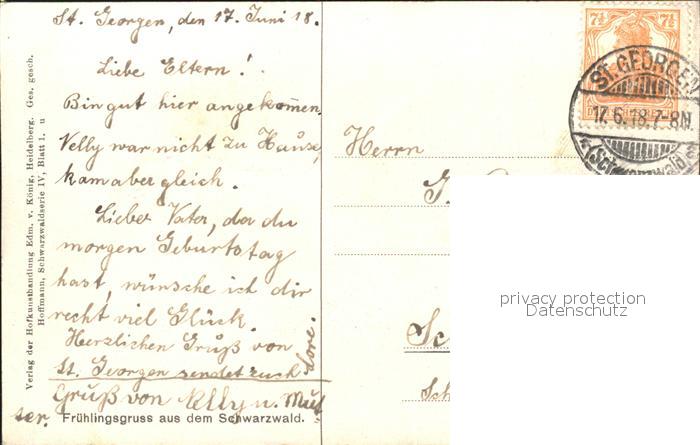 St. Georgen, den 17. Juni 18.
Liebe Eltern!
Bin gut hier angekom̅en.
Nelly war nicht zu Hause,
kam aber gleich.
Lieber Vater, da du
morgen Geburtstag
hast, wünsche ich dir
recht viel Glück.
Herzlichen Gruß von
St. Georgen sendet euch
Lore.
Gruß von Nelly u. Mut
ter.
Frühlingsgruss aus dem Schwarzwald.
Verlag der Hofkunsthandlung Edm. v. König, Heidelberg. Ges. gesch.
Hoffmann, Schwarzwaldserie IV, Blatt 1. u
Herrn
7½ 7½
ST. GEORGEN
17.6.18.7-8N
(Schwarzwald)
privacy protection
Datenschutz